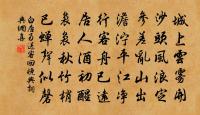 城上雲霧開
沙頭風浪定
參差亂山出
澹泞平江淨
行客舟已遠
居人酒初醒
裊裊秋竹梢
巴蟬聲似磬
白居易送客回晚興詞